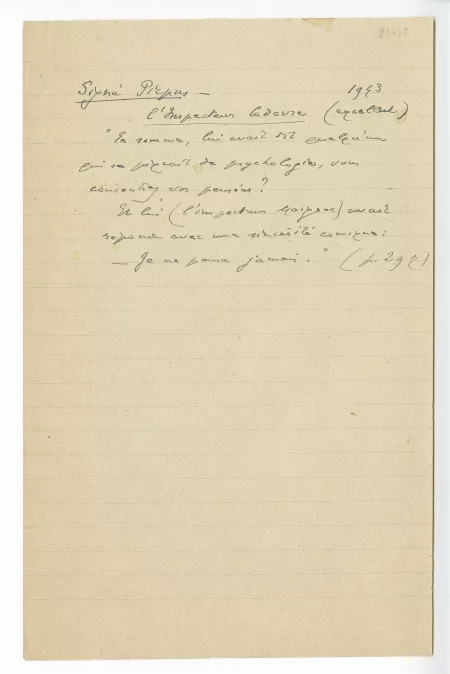 21-10
Signé Picpus — 1943
l'Inspecteur Cadavre (excellent)
"En somme, lui avait dit quelqu'un
qui se piquait de psychologie, vous
concentrez vos pensées ?
Et lui (l'inspecteur Maigret) avait
répondu avec une sincérité comique :
— Je ne pense jamais." (p. 297)